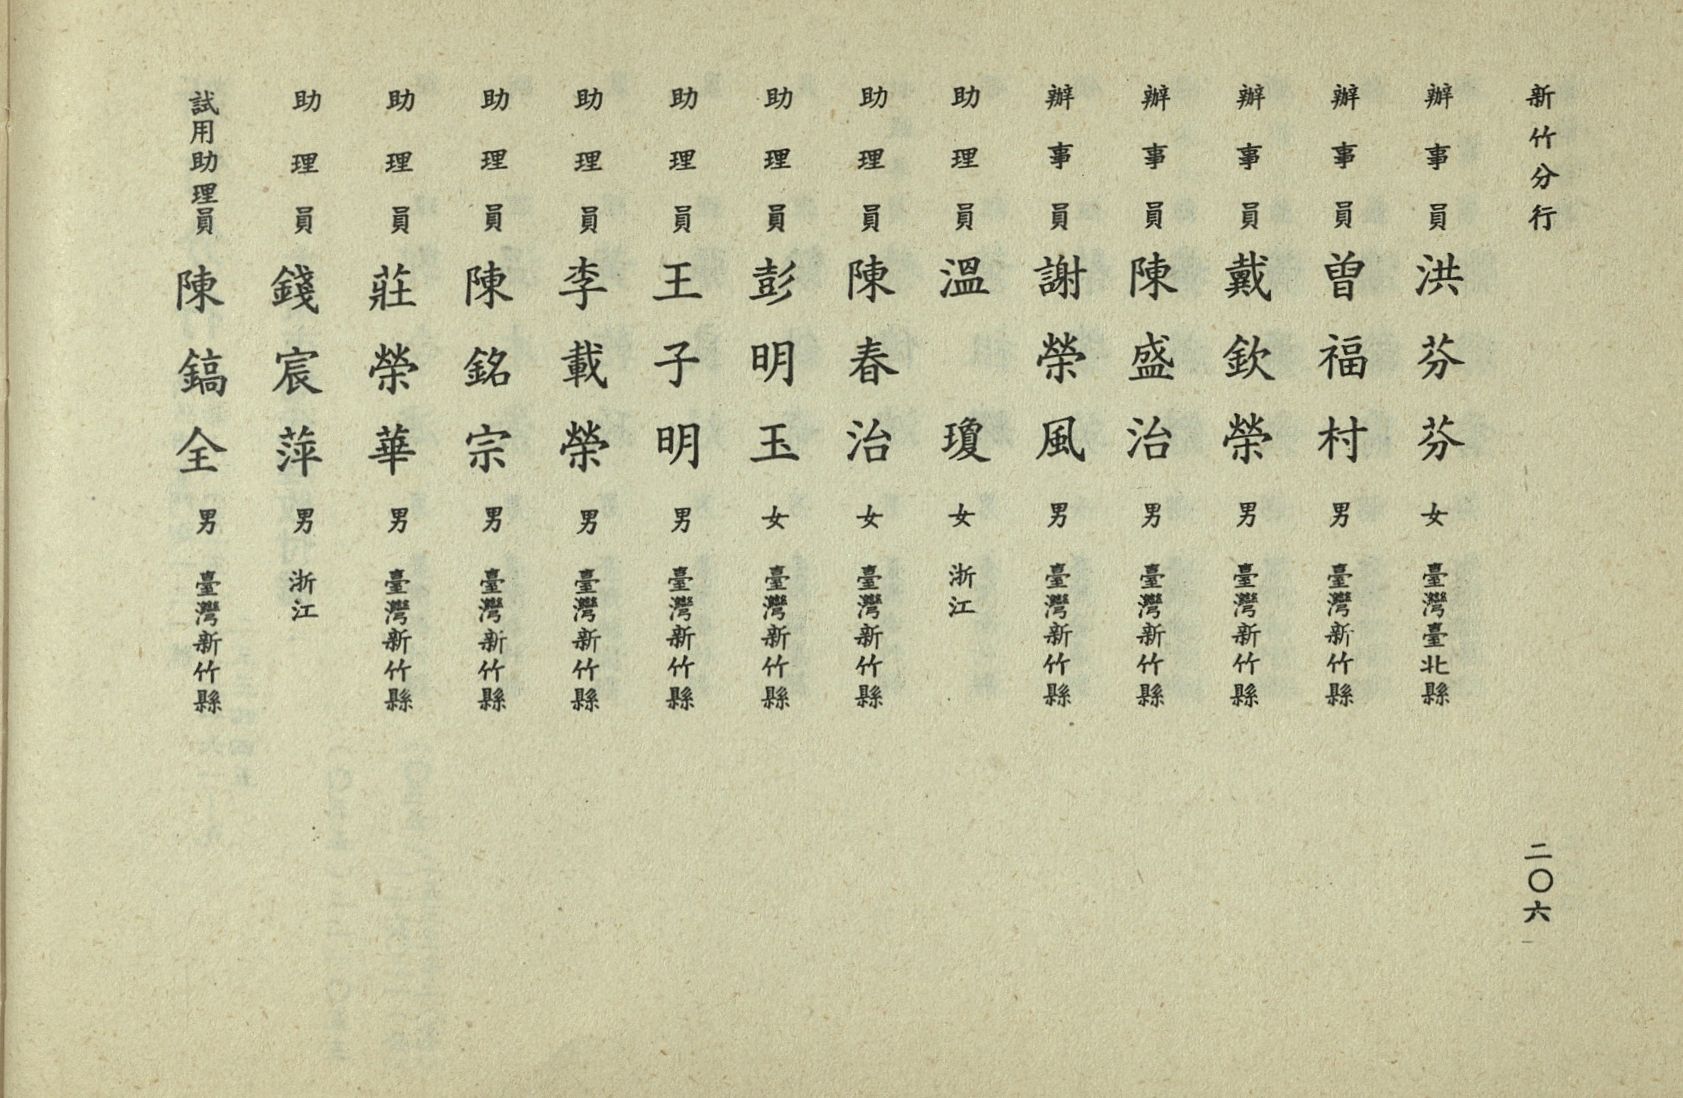 新竹分行
辦事員 洪芬芬 女 臺灣臺北縣
辦事員 曾福村 男 臺灣新竹縣
辦事員 戴欽榮 男 臺灣新竹縣
辦事員 陳盛治 男 臺灣新竹縣
辦事員 謝榮風 男 臺灣新竹縣
助理員 溫瓊 女 浙江
助理員 陳春治 女 臺灣新竹縣
助理員 彭明玉 女 臺灣新竹縣
助理員 王子明 男 臺灣新竹縣
助理員 李載榮 男 臺灣新竹縣
助理員 陳銘宗 男 臺灣新竹縣
助理員 莊榮華 男 臺灣新竹縣
助理員 錢宸萍 男 浙江
試用助理員 陳鎬全 男 臺灣新竹縣
二〇六